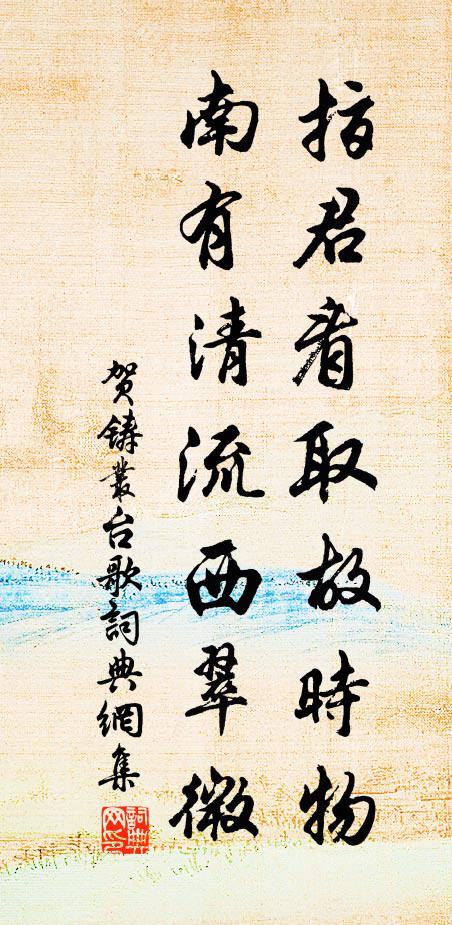 指君看取故時物
南有清流西翠微
贺鑄叢台歌詞典網集
詞典網印